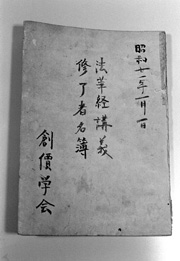 昭和十一年一月一日
法華経講義
修了者名簿
創価学会